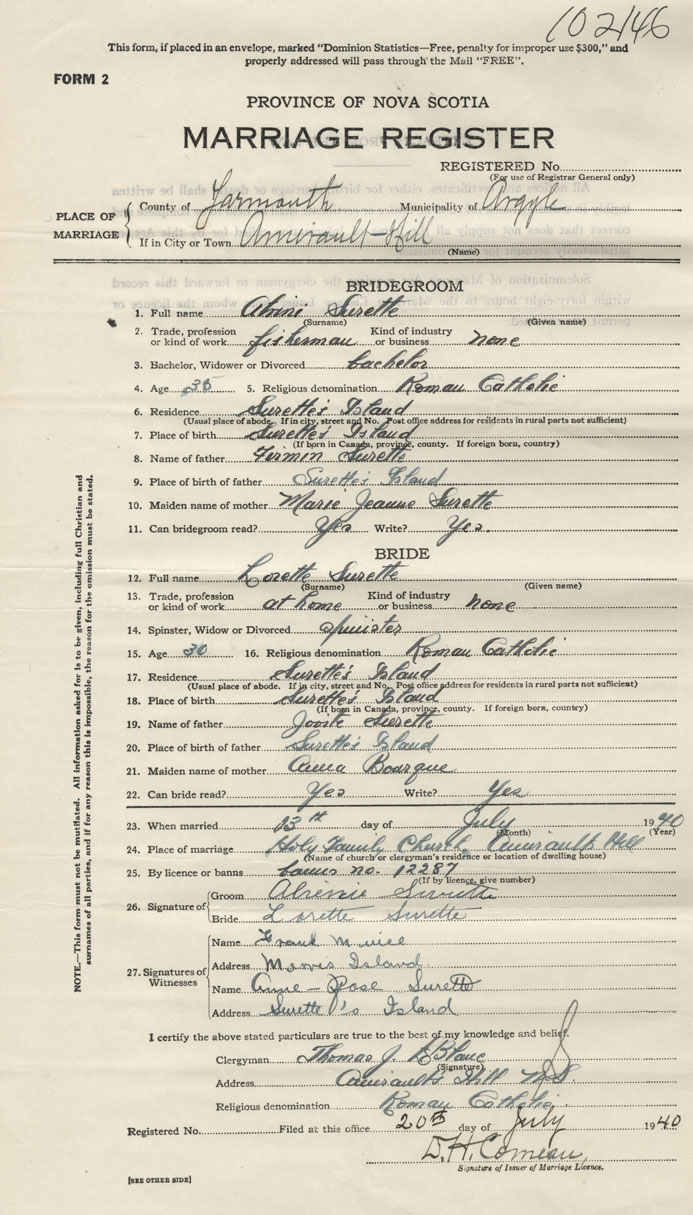 102146
This form, if placed in an envelope, marked "Dominion Statistics—Free, penalty for improper use $300," and
properly addressed will pass through the Mail "FREE".
FORM 2
PROVINCE OF NOVA SCOTIA
MARRIAGE REGISTER
REGISTERED No.
(For use of Registrar General only)
PLACE OF MARRIAGE
County of Yarmouth Municipality of Argyle
If in City or Town Amirault Hill
(Name)
BRIDEGROOM
1. Full name Alvini Surette
(Surname) (Given name)
2. Trade, profession or kind of work fisherman Kind of industry or business none
3. Bachelor, Widower or Divorced bachelor
4. Age 36 5. Religious denomination Roman Catholic
6. Residence Surette's Island
(Usual place of abode. If in city, street and No. Post office address for residents in rural parts not sufficient)
7. Place of birth Surette's Island
(If born in Canada, province, county. If foreign born, country)
8. Name of father Firmin Surette
9. Place of birth of father Surette's Island
10. Maiden name of mother Marie Jeanne Surette
11. Can bridegroom read? Yes Write? Yes
BRIDE
12. Full name Lorette Surette
(Surname) (Given name)
13. Trade, profession or kind of work at home Kind of industry or business none
14. Spinster, Widow or Divorced Spinister
15. Age 30 16. Religious denomination Roman Catholic
17. Residence Surette's Island
(Usual place of abode. If in city, street and No. Post office address for residents in rural parts not sufficient)
18. Place of birth Surette's Island
(If born in Canada, province, county. If foreign born, country)
19. Name of father Surette
20. Place of birth of father Surette's Island
21. Maiden name of mother Anna Bourque
22. Can bride read? Yes Write? Yes
23. When married 13th day of July 1940
(Month) (Year)
24. Place of marriage Holy Family Church, Amirault Hill
(Name of church or clergyman's residence or location of dwelling house)
25. By licence or banns banns no. 12287
(If by licence, give number)
26. Signature of
Groom Surette
Bride Lorette Surette
27. Signatures of Witnesses
Name Frank
Address Morris Island
Name Anne-Rose Surette
Address Surette's Island
I certify the above stated particulars are true to the best of my knowledge and belief.
Clergyman Thomas J. LeBlanc
(Signature)
Address Amirault's Hill N.S.
Religious denomination Roman Catholic
Registered No. Filed at this office 20th day of July 1940
D.H. Comeau
Signature of Issuer of Marriage Licence.
[SEE OTHER SIDE]
NOTE.—This form must not be mutilated. All information asked for is to be given, including full Christian and
surnames of all parties, and if for any reason this is impossible, the reason for the omission must be stated.